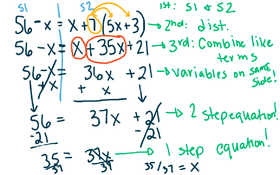 S1 S2 1st: S1 & S2
56 - x = x + 7(5x+3) → 2nd: dist.
56 - x = x + 35x + 21 → 3rd: Combine like terms
56 - x = 36x + 21 → variables on same side!
+ x + x
56 = 37x + 21 → 2 step equation!
-21 -21
35 = 37x → 1 step equation!
37 37 35/37 = x